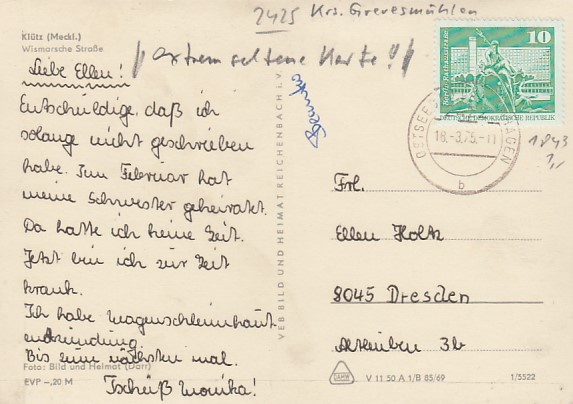 2425 Krs. Grevesmühlen
Klütz (Meckl.)
Wismarsche Straße
// extrem seltene Karte!! //
Liebe Ellen!
Entschuldige, daß ich
solange nicht geschrieben
habe. Im Februar hat
meine Schwester geheiratet.
Da hatte ich keine Zeit.
Jetzt bin ich zur Zeit
krank.
Ich habe Magenschleimhaut
entzündung.
Bis zum nächsten mal.
Tschüß Monika!
Foto: Bild und Heimat (Darr)
EVP –,20 M
VEB BILD UND HEIMAT REICHENBACH i. V.
10
DEUTSCHE DEMOKRATISCHE REPUBLIK
OSTSEEBAD
18.-3.75.-11
b
Frl.
Ellen Holtz
8045 Dresden
Altleuben 3b
V 11 50 A 1/B 85/69
1/5522